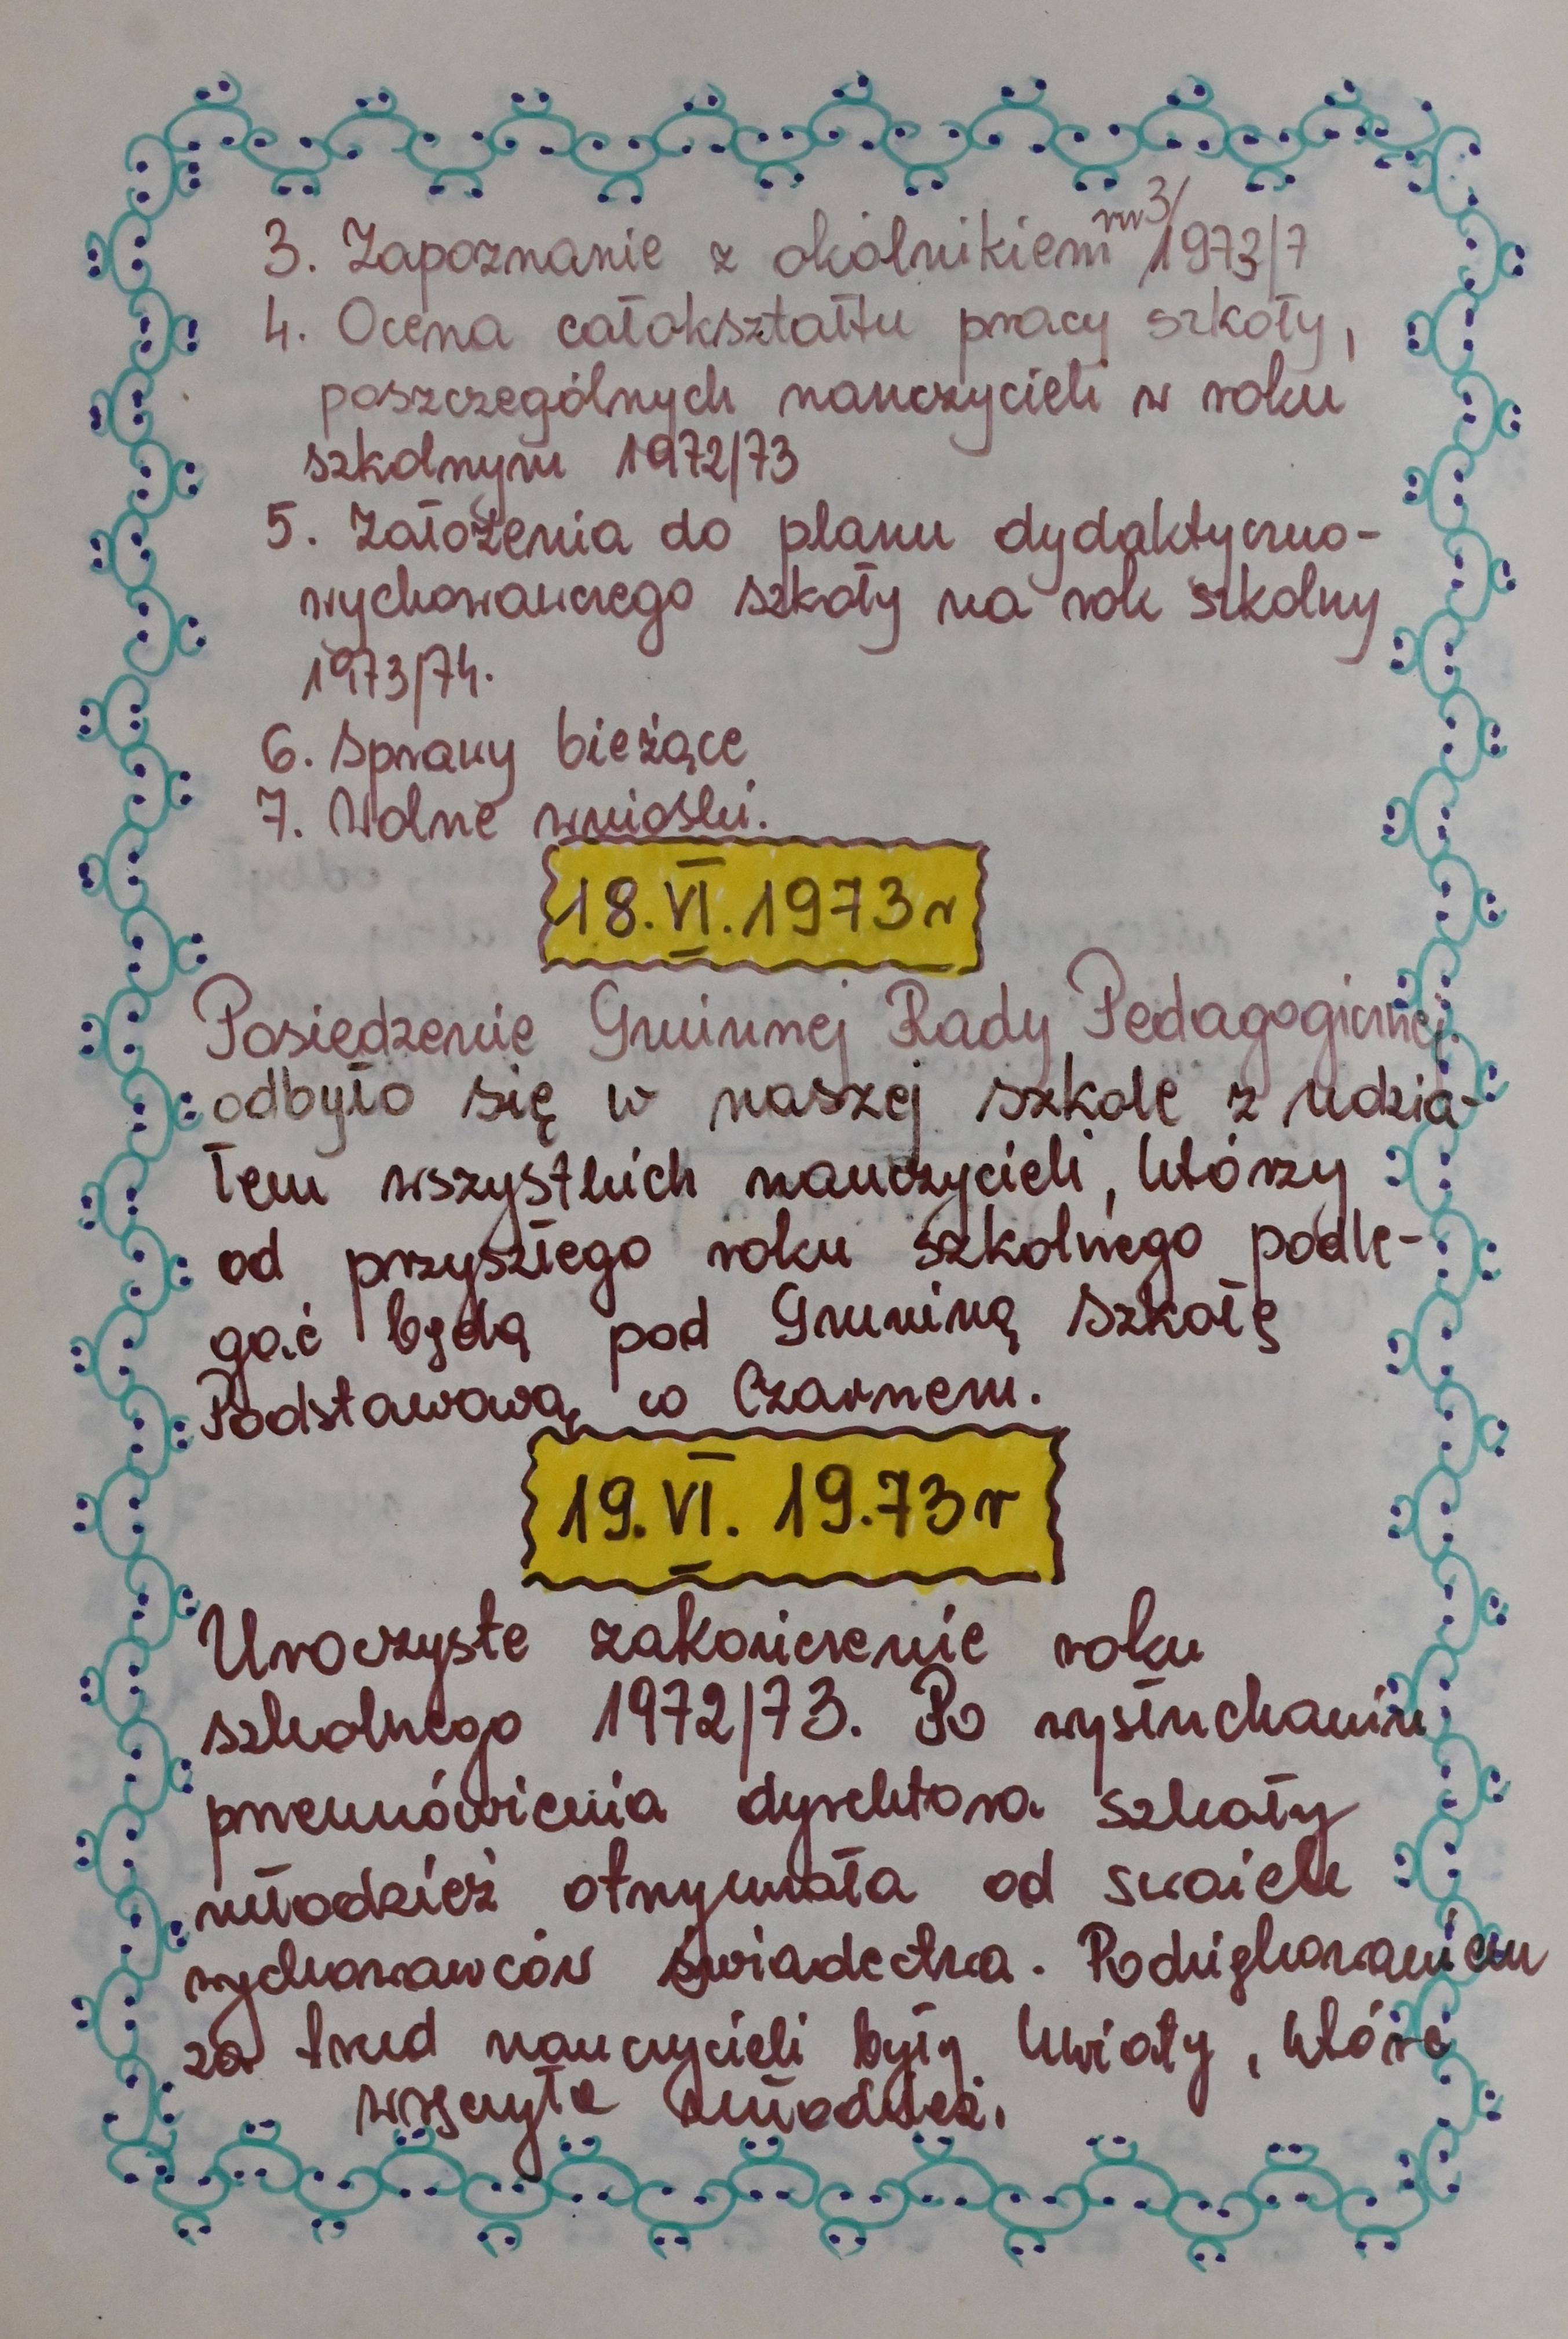 3. Zapoznanie z okólnikiem nr 3/1973/7
4. Ocena całokształtu pracy szkoły,
poszczególnych nauczycieli w roku
szkolnym 1972/73
5. Założenia do planu dydaktyczno-
wychowawczego szkoły na rok szkolny
1973/74.
6. Sprawy bieżące
7. Wolne wnioski.
18.VI.1973r
Posiedzenie Gminnej Rady Pedagogicznej
odbyło się w naszej szkole z udzia-
łem wszystkich nauczycieli, którzy
od przyszłego roku szkolnego podle-
gać będą pod Gminną Szkołę
Podstawową w Czarnem.
19.VI.19.73r
Uroczyste zakończenie roku
szkolnego 1972/73. Po wysłuchaniu
przemówienia dyrektora szkoły
młodzież otrzymała od swoich
wychowawców świadectwa. Podziękowaniem
za trud nauczycieli były kwiaty, które
wręczyła młodzież.